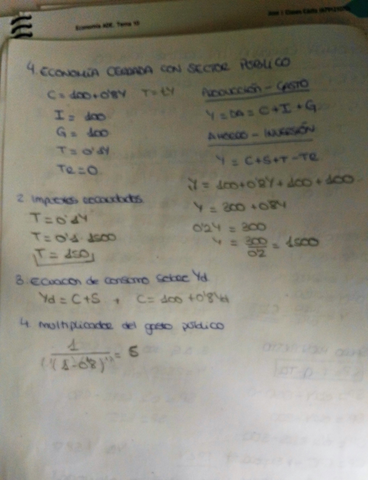 Economía ADE, Tema 10
4. ECONOMÍA CERRADA CON SECTOR PÚBLICO
C = 100+0'8Y T=tY
I = 100
G = 100
T = 0'1Y
TR=0.
PRODUCCIÓN - GASTO
Y = DA = C + I + G.
AHORRO - INVERSIÓN
Y = C+S+T-TR
Y = 100+0'8Y+100+100.
Y = 300 + 0'8Y
0'2Y = 300
Y = 300/0'2 = 1500
2. Impuestos recaudados
T = 0'1Y
T = 0'1 · 1500
T = 150
3. Ecuación de consumo sobre Yd.
Yd = C+S , C = 100 + 0'8Yd
4. Multiplicador del gasto público
1/(1-0'8) = 5